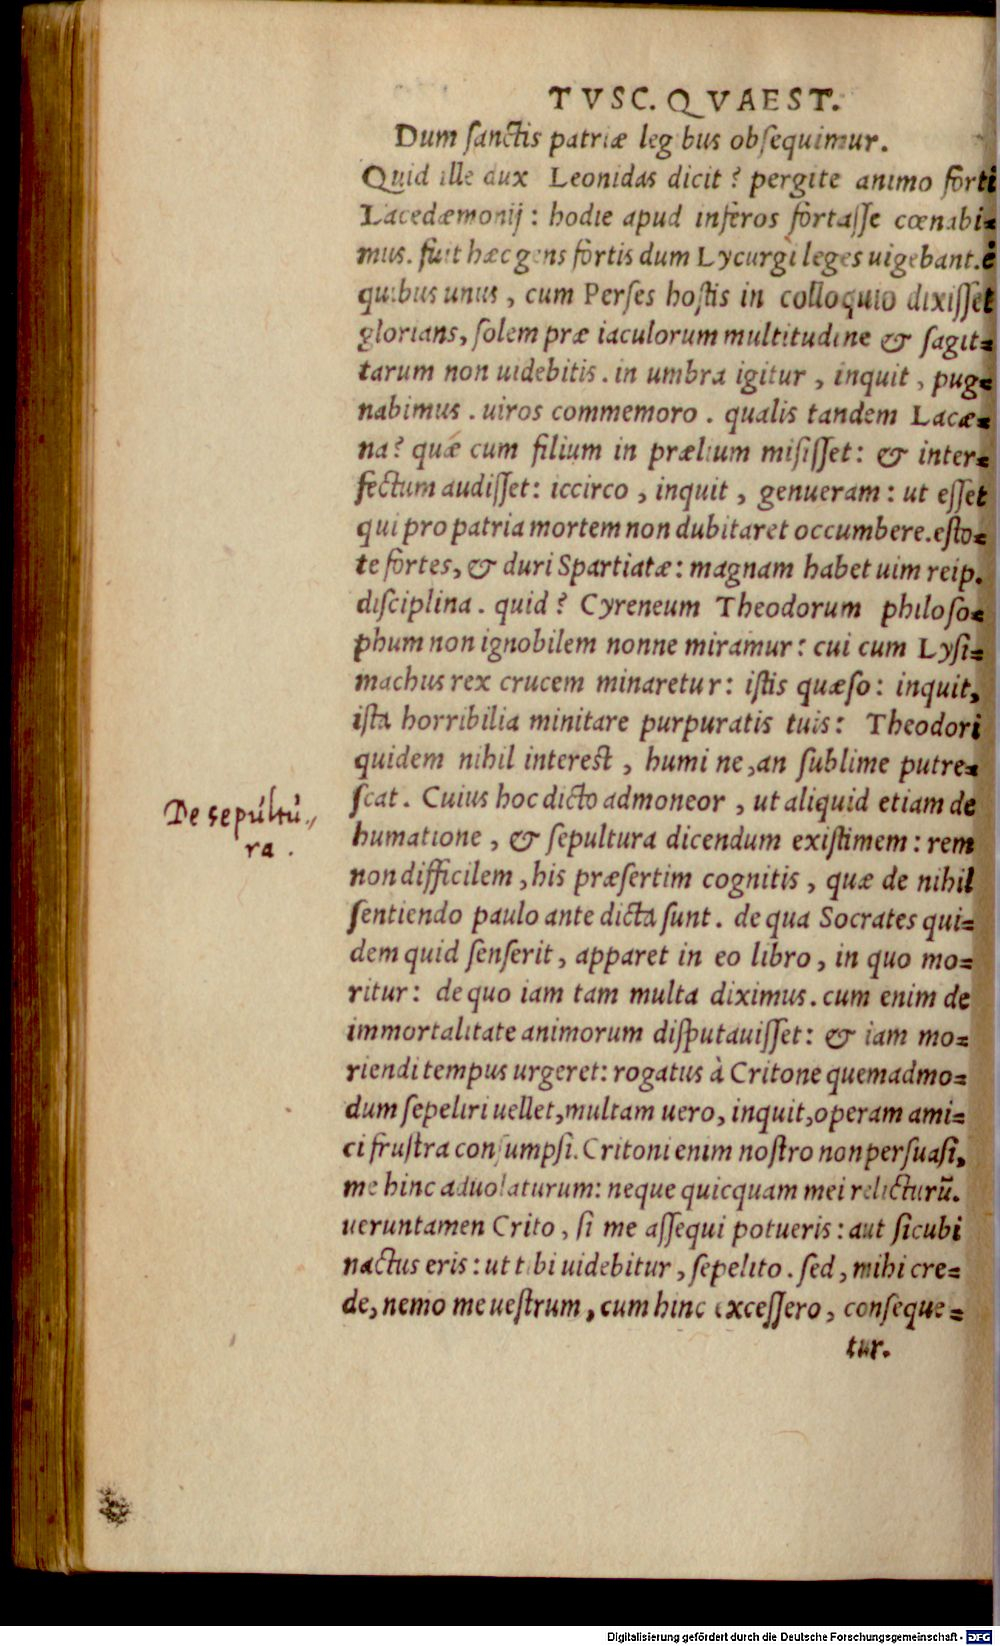 TVSC. QVAEST.
Dum sanctis patriæ leg bus obsequimur.
Quid ille dux Leonidas dicit? pergite animo forti
Lacedæmonij: hodie apud inferos fortasse cœnabi=
mus. fuit hæc gens fortis dum Lycurgi leges uigebant. è
quibus unus, cum Perses hostis in colloquio dixisset
glorians, solem præ iaculorum multitudine & sagit=
tarum non uidebitis. in umbra igitur, inquit, pug=
nabimus. uiros commemoro. qualis tandem Lacæ=
na? quæ cum filium in prælium misisset: & inter=
fectum audisset: iccirco, inquit, genueram: ut esset
qui pro patria mortem non dubitaret occumbere. esto=
te fortes, & duri Spartiatæ: magnam habet uim reip.
disciplina. quid? Cyreneum Theodorum philoso=
phum non ignobilem nonne miramur: cui cum Lysi=
machus rex crucem minaretur: istis quæso: inquit,
ista horribilia minitare purpuratis tuis: Theodori
quidem nihil interest, humi ne, an sublime putre=
scat. Cuius hoc dicto admoneor, ut aliquid etiam de
humatione, & sepultura dicendum existimem: rem
non difficilem, his præsertim cognitis, quæ de nihil
sentiendo paulo ante dicta sunt. de qua Socrates qui=
dem quid senserit, apparet in eo libro, in quo mo=
ritur: de quo iam tam multa diximus. cum enim de
immortalitate animorum disputauisset: & iam mo=
riendi tempus urgeret: rogatus à Critone quemadmo=
dum sepeliri uellet, multam uero, inquit, operam ami=
ci frustra consumpsi. Critoni enim nostro non persuasi,
me hinc aduolaturum: neque quicquam mei relicturũ.
ueruntamen Crito, si me assequi potueris: aut sicubi
nactus eris: ut tibi uidebitur, sepelito. sed, mihi cre=
de, nemo me uestrum, cum hinc excessero, conseque=
tur.
De sepultu,,
ra.
Digitalisierung gefördert durch die Deutsche Forschungsgemeinschaft - DFG